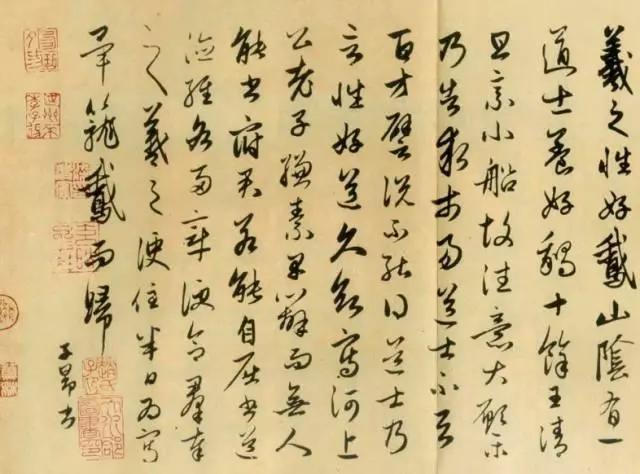 羲之性好鵞山陰有一
道士養好鵝十餘王清
旦乘小船故往意大願樂
乃告求市易道士不與
百方譬說不能得道士乃
言性好道久欲寫河上
公老子縑素早辦而無人
能書府君若能自屈書道
德經各兩章便合羣奉
之羲之便住半日為寫
畢籠鵞而歸
子昂書